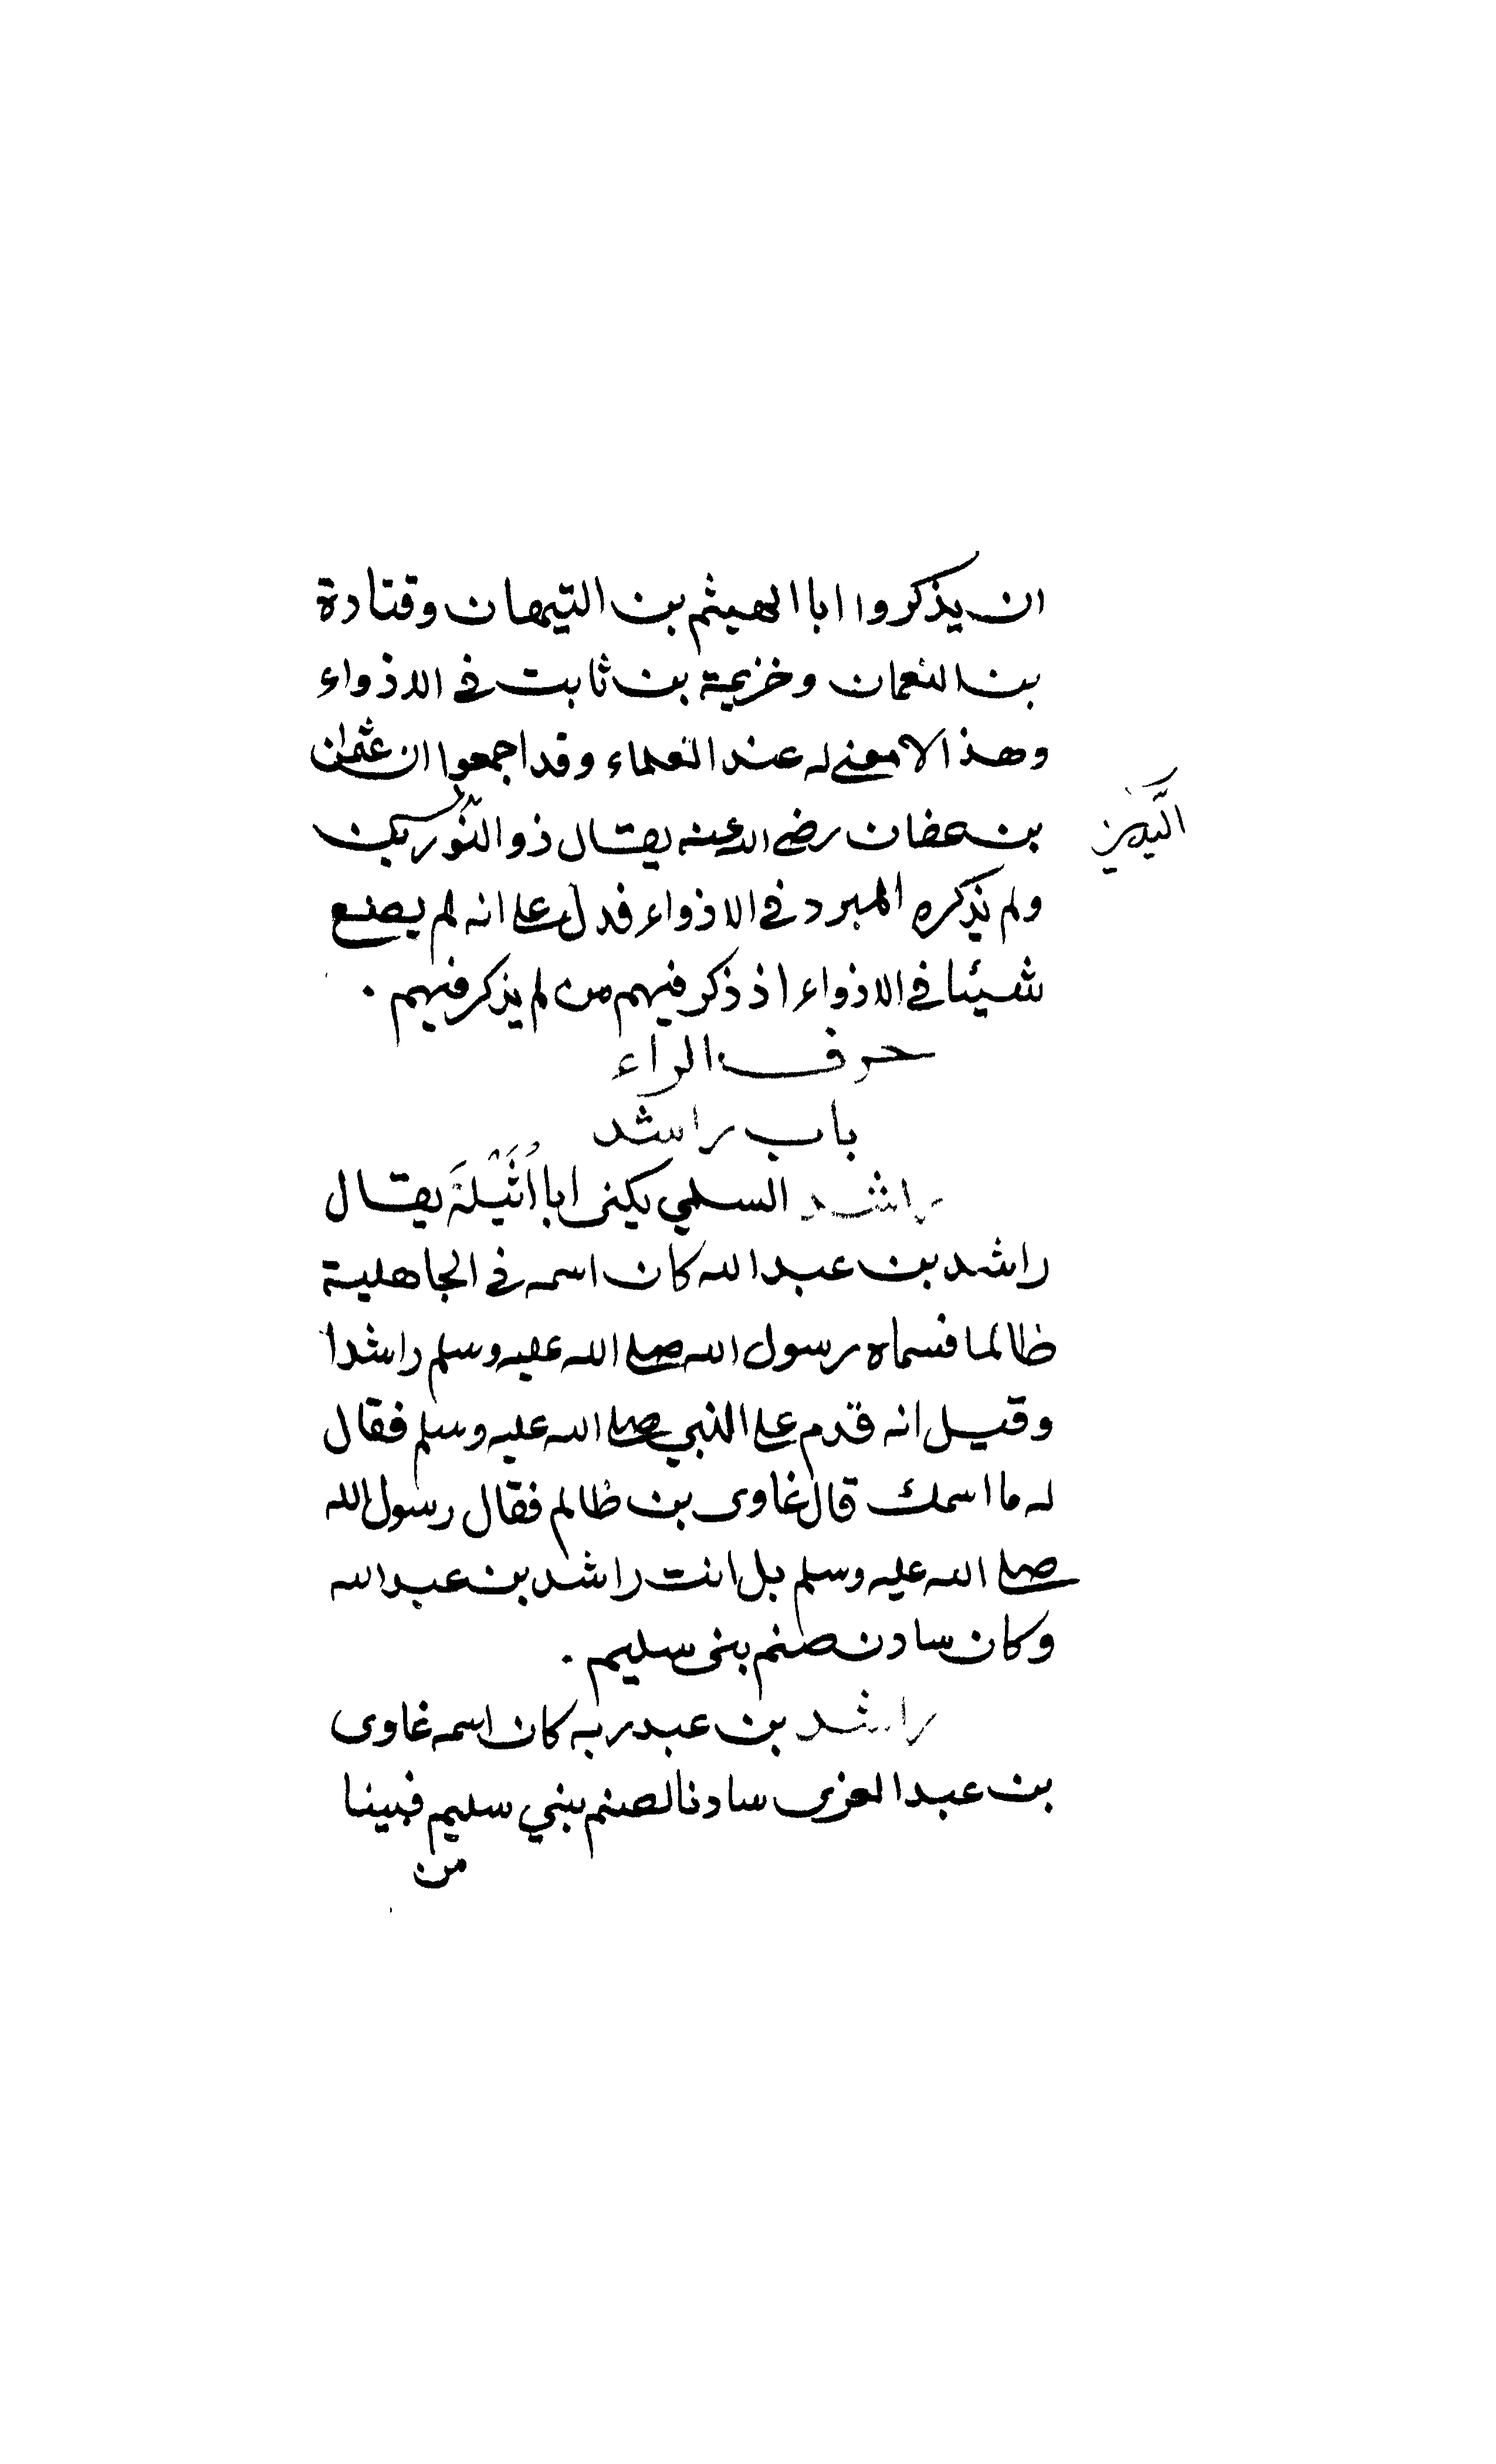 ان يذكروا ابا الهيثم بن التيهان وقتادة
بن النعمان وخزيمة بن ثابت في الاذواء
وهذا لا معنى له عند العلماء وقد اجمعوا ان عثمان
بن عفان رضي الله عنه يقال ذو النورين
ولم يذكره المبرد في الاذواء فدل على انه لم يصنع
شيئا في الاذواء اذ ذكر فيهم من لم يذكر فيهم .
حرف الراء
باب راشد
راشد السلمي يكنى ابا اُثَيْلَةَ يقال
راشد بن عبد الله كان اسمه في الجاهلية
ظالما فسماه رسول الله صلى الله عليه وسلم راشدا
وقيل انه قدم على النبي صلى الله عليه وسلم فقال
له ما اسمك قال غاوى بن ظالم فقال رسول الله
صلى الله عليه وسلم بل انت راشد بن عبد الله
وكان سادن صنم بنى سليم .
راشد بن عبد ربه كان اسمه غاوى
بن عبد العزى سادنا لصنم بني سليم فبينا